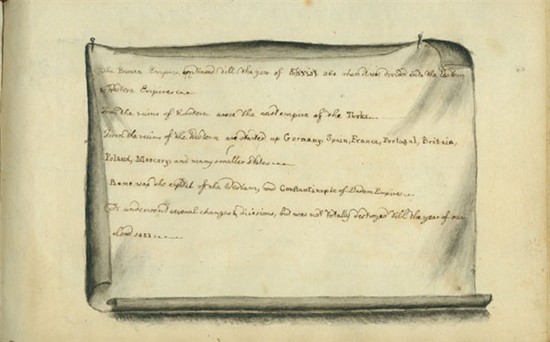 The Roman Empire continued till the year of when it was divided into the Eastern
& Western Empires
From the ruins of Eastern arose the vast empire of the Turks
From the ruins of the Western are started up Germany, Spain, France, Portugal, Britain,
Poland, Moscovy, and many smaller states
Rome was the capital of the Western, and Constantinople of Eastern Empire
It underwent several changes & divisions, but was not totally destroyed till the year of our
Lord 1453